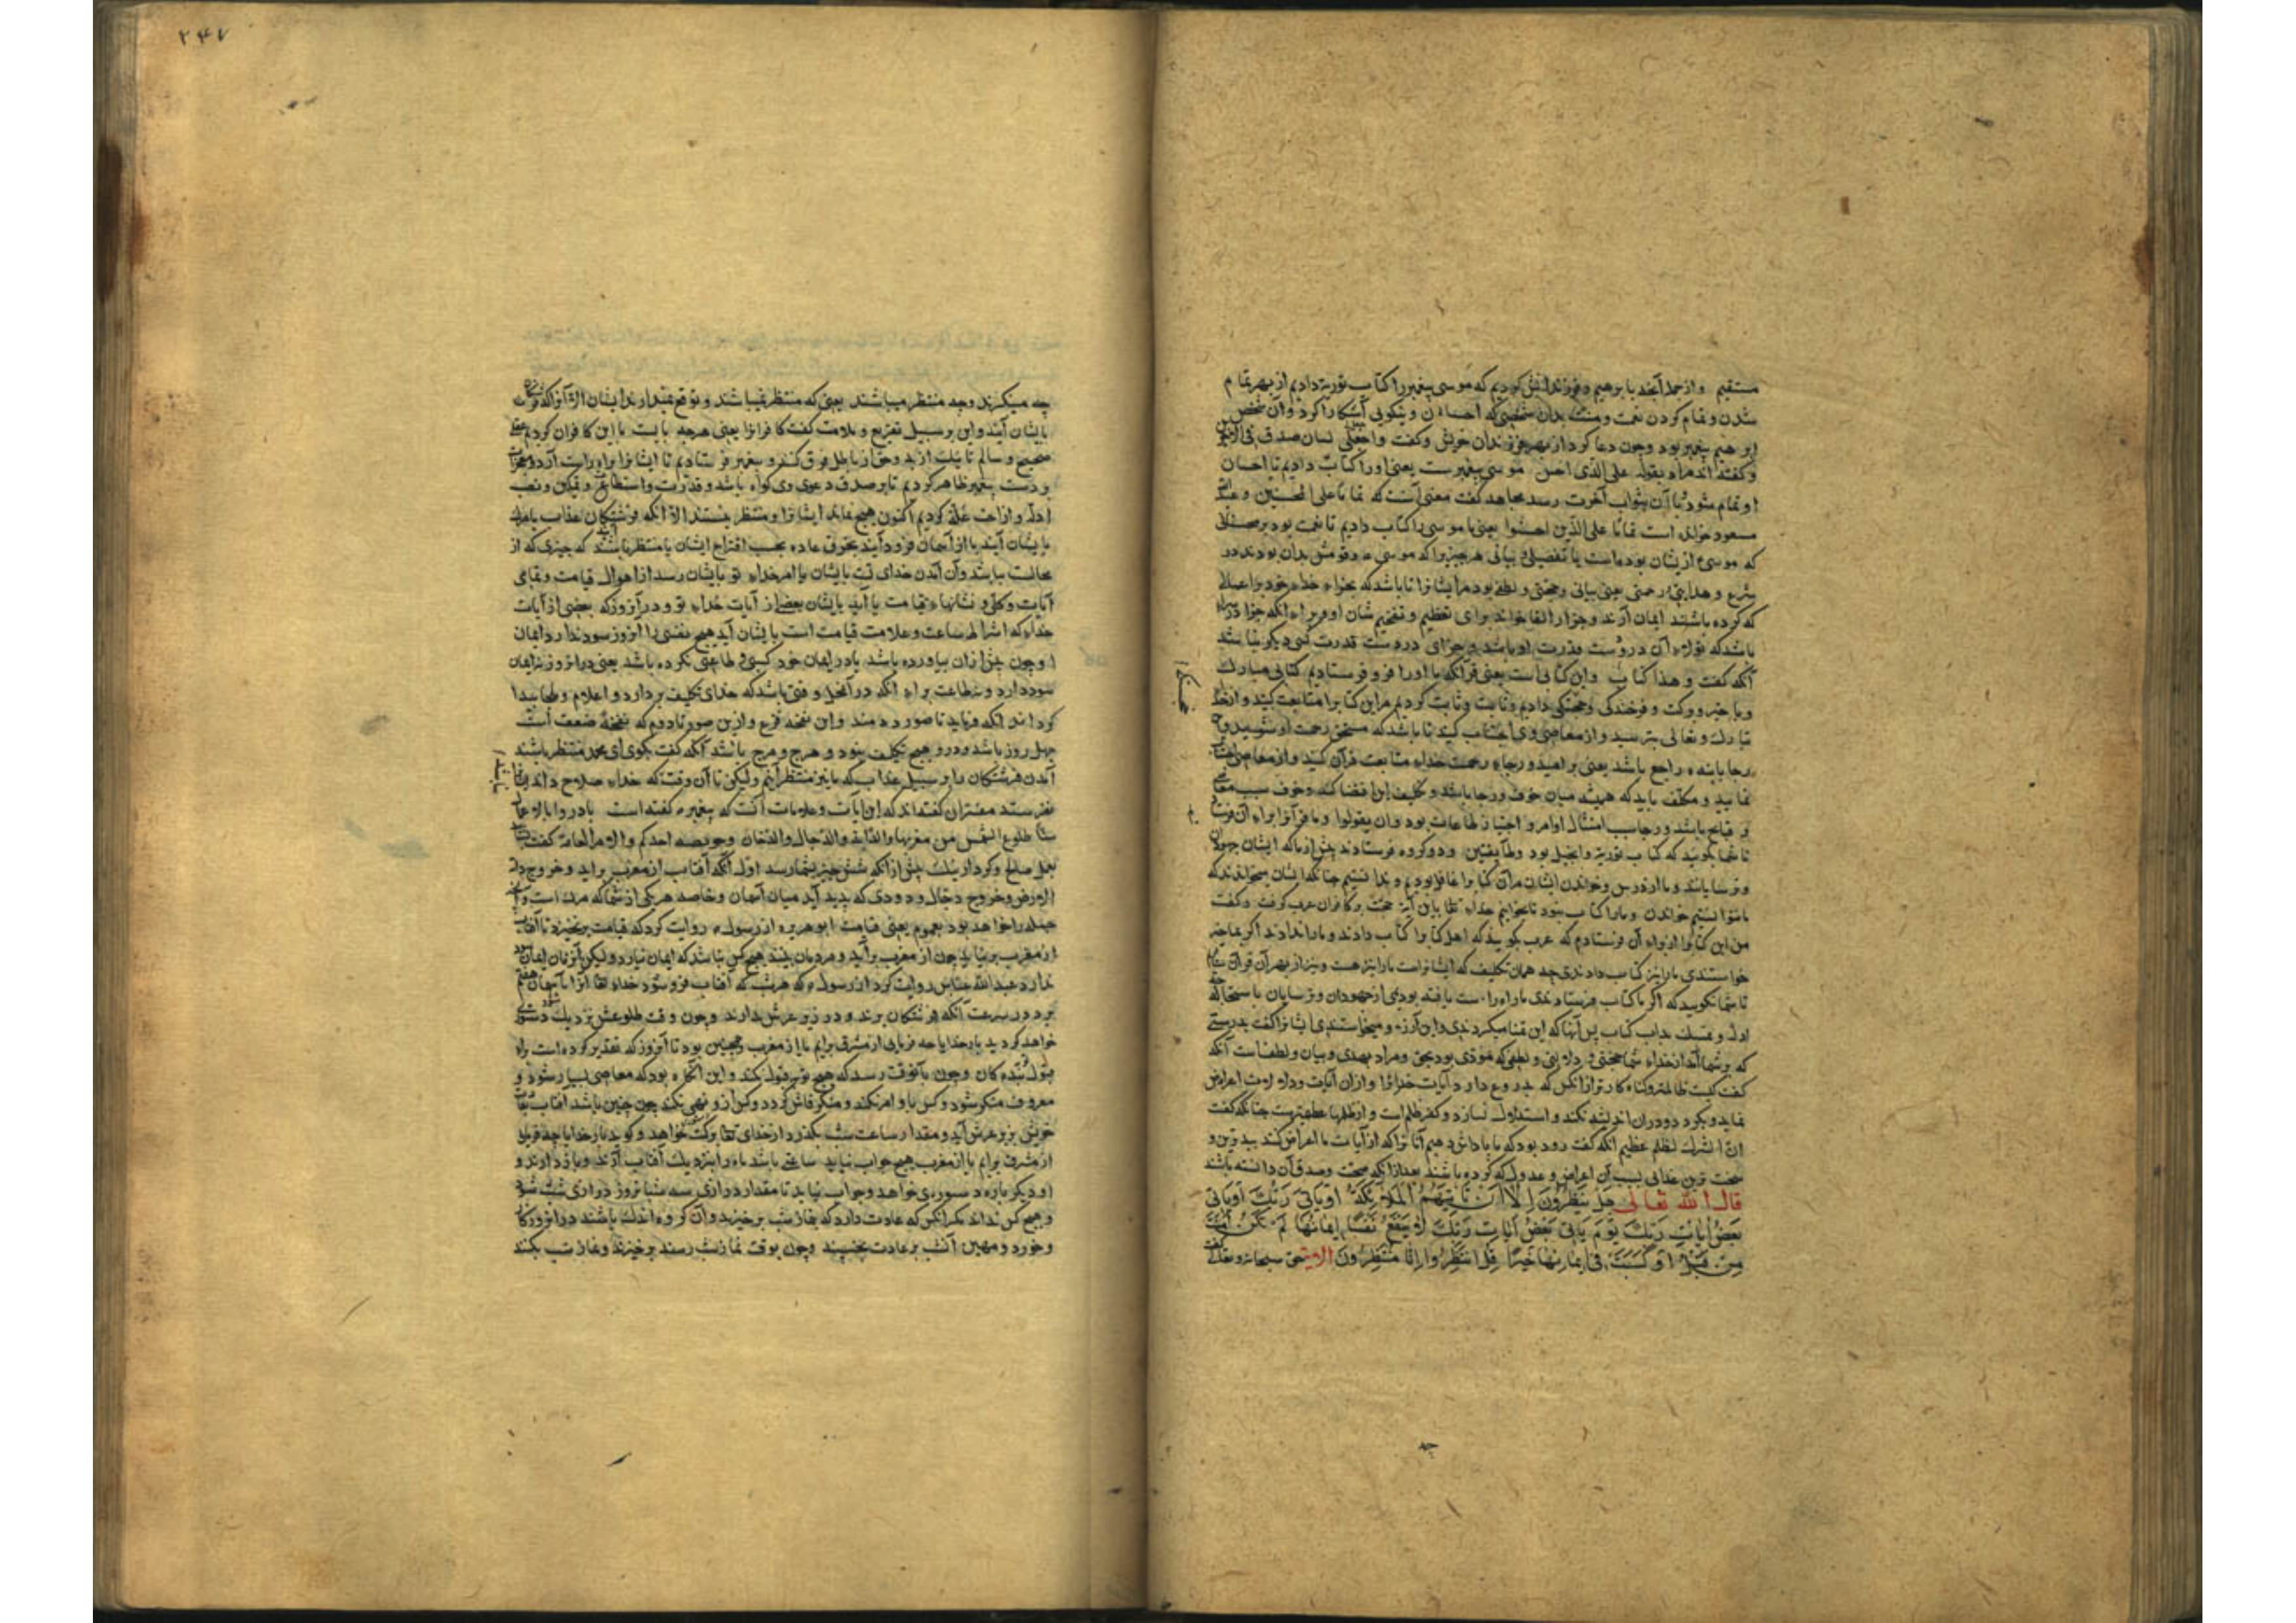 مستقیم و از جمله آنچه بابرهیم و فرزندانش کردیم که موسی پیغمبر را کتاب توریة دادیم از بهر تمام
شدن و تمام کردن نعمت و منت بدان شخصی که احسان و نیکویی آشکارا کرد و آن شخص
ابرهیم پیغمبر بود و چون دعا کرد از بهر فرزندان خویش و گفت واجعل لی لسان صدق فی الآخرین
و گفته‌اند مراد بقوله علی الذی احسن موسی پیغمبرست یعنی او را کتاب دادیم تا احسان
او تمام شود تا آن بثواب آخرت رسد مجاهد گفت معنی آنست که تماما علی المحسنین و عبدالله
مسعود خوانده است تماما علی الذین احسنوا یعنی ما موسی را کتاب دادیم تا نعمت بود بر محسنانی
که موسی از یشان بوده است یا تفصیلی و بیانی هر چیز را که موسی و قومش بدان بودند در
شرع و هدایتی و رحمتی یعنی بیانی و حجتی و لطفی بود مر ایشانرا تا باشد که بجزاء خداء خود بر اعمالی
که کرده باشند ایمان آرند و جزا را لقا خواند برای تعظیم و تفخیم شان او و براء انکه جزا
باشد که تولاء آن در دست قدرت او باشد و جزای در دست قدرت کسی دیگر نباشد
آنگه گفت و هذا کتاب و این کتابی است یعنی قرآنکه ما او را فرو فرستادیم کتابی مبارک
و با خیر و برکت و فرخندگی و خجستگی دادیم و ثابت کردیم مر این کتابرا متابعت کنید و از خدا
تبارک و تعالی بترسید و از معاصی وی اجتناب کنید تا باشد که مستحق رحمت او شوید و
رجا بابنده راجع باشد یعنی بر امید و رجاء رحمت خداء متابعت قرآن کنید و از معاصی اجتناب
نمایید و مکلف باید که همیشه میان خوف و رجا باشد و تکلیف این اقتضا کند و خوف سبب
و قبایح باشد و رجا سبب امتثال اوامر و اختیار طاعات بود و ان یقولوا و ما قرآنرا براء آن فرستادیم
تا شما نگویید که کتاب توریة و انجیل بود و طایفتین و دو گروه فرستادند پیش از ما که ایشان جهودان
و ترسایانند و ما از درس و خواندن ایشان مر آن کتابرا غافل بودیم و ندانستیم چنانکه ایشان میخواندند که
ما نتوانستیم خواندن و ما را کتاب نبود تا بخوانیم خداء تعالی باین آیة حجت بر کافران عرب گرفت و گفت
من این کتابرا از براء آن فرستادم که عرب نگویند که اهل کتابرا کتاب دادند و ما را ندادند اگر بما خیر
خواستندی ما را نیز کتاب دادندی چه همان تکلیف که ایشانراست ما را نیز هست و نیز از بهر آن قرآن
تا شما نگویید که اگر ما کتاب فرستادندی ما راه راست یافته بودیمی از جهودان و ترسایان
اول و تمسک بداب کتاب پس آنها که این تمنا میکردندی و این آرزو میخواستندی ایشانرا گفت بدرستی
که بر شما آمد از خداء شما حجتی و دلالتی و لطفی که مؤدی بود بحق و مراد بهدی و بیان و لطف است آنگه
گفت کیست ظالمتر و گناه کارتر از انکس که بدروغ دارد آیات خدا را و از آن آیات و دلالات اعراض
نماید و بگردد و در آن اندیشه نکند و استدلال نسازد و کفر ظلم است و از ظلمها عظیمترست چنانکه گفت
ان الشرک لظلم عظیم آنگه گفت زود بود که ما پاداش دهیم آنانرا که از آیات ما اعراض کنند ببدترین و
سخت ترین عذابی بسبب آن اعراض و عدول که کرده باشند بعد از انکه صحت و صدق آن دانسته باشند
قال الله تعالی هَلْ يَنْظُرُونَ اِلَّا اَنْ تَأْتِيَهُمُ الْمَلَائِكَةُ اَوْ يَأْتِيَ رَبُّكَ اَوْ يَأْتِيَ
بَعْضُ اٰيَاتِ رَبِّكَ يَوْمَ يَأْتِي بَعْضُ اٰيَاتِ رَبِّكَ لَا يَنْفَعُ نَفْسًا اِيمَانُهَا لَمْ تَكُنْ اٰمَنَتْ
مِنْ قَبْلُ اَوْ كَسَبَتْ فِي اِيمَانِهَا خَيْرًا قُلِ انْتَظِرُوا اِنَّا مُنْتَظِرُونَ الایة حق سبحانه و تعالی گفت
چه
۲۴۷
چه مینگرند و چه منتظر میباشند یعنی که منتظر نمیباشند و توقع نمیدارند ایشان الا آنرا که فرشتگان
بایشان آیند و این بر سبیل تقریع و ملامت گفت کافرانرا یعنی هر چه بایست با این کافران کردم عقل
صحیح و سالم تا نیک از بد و حق از باطل فرق کنند و پیغمبر فرستادیم تا ایشانرا براه راست آرد و معجزات
بر دست پیغمبر ظاهر کردیم تا بر صدق دعوی وی گواه باشد و قدرت و استطاعت و تمکین و نصب
ادله و ازاحت علت کردیم اکنون هیچ نماند ایشانرا و منتظر نیستند الا انکه فرشتگان عذاب یا مرگ
بایشان آیند یا از آسمان فرود آیند بخرق عاده بحسب اقتراح ایشان یا منتظر باشند که چیزی که از
محالست بباشد و آن آمدن خدای تست بایشان یا امر خداء تو بایشان رسد از اهوال قیامت و تمامی
آیات و کلی و نشانهاء قیامت یا آید بایشان بعضی از آیات خداء تو و در آنروز که بعضی از آیات
خداء که اشراط ساعت و علامت قیامت است بایشان آید هیچ نفسی را آنروز سود ندارد ایمان
او چون پیش از آن نیاورده باشد یا در ایمان خود کسبی و طاعتی نکرده باشد یعنی در انروز نه ایمان
سود دارد و نه طاعت براء انکه در آنحال وقتی باشد که خدای تکلیف بردارد و اعلام و
گردانند انکه و نیاید تا صور دمند و این نفخه فزع و ازین صور تا دوم که نفخۀ صعق است
چهل روز باشد و درو هیچ تکلیف نبود و هرج و مرج باشد آنگه گفت بگوی ای محمد منتظر باشند
آمدن فرشتگان را بر سبیل عذاب که ما نیز منتظر آنیم ولیکن تا آن وقت که خداء صلاح داند
بفرستد مفسران گفته‌اند که این آیات و علامات آنست که پیغمبر ۴ گفته است بادروا بالاعمال
ستا طلوع الشمس من مغربها والدابة والدجال والدخان وخویصة احدکم والامر العامة گفت
بعمل صالح و کردار نیک پیش از انکه شش چیز بشما رسد اول انکه آفتاب از مغرب براید و خروج دابة
الارض و خروج دجال و دودی که پدید آید میان آسمان و خاصه هر یکی از شما که مرگ است و آنچه
جمله را خواهد بود بعموم یعنی قیامت ابو هریره از رسول ۴ روایت کرد که قیامت برنخیزد تا آفتاب
از مغرب برنیاید چون از مغرب برآید و مردمان ببینند هیچ کس نباشد که ایمان نیارد ولیکن آنزمان ایمان سود
ندارد عبدالله عباس روایت کرد از رسول ۴ که هر شب که آفتاب فرو شود خداء تعالی آنرا بآسمان هفتم
برد در سرعت آنکه فرشتگان برند و در زیر عرش بدارند و چون وقت طلوعش نزدیک شود دستوری
خواهد گردید بار خدایا چه فرمایی از مشرق برایم یا از مغرب و همچنین بود تا آنروز که تقدیر کرده است براء
قبول توبۀ بندگان و چون بآنوقت رسد که هیچ توبه قبول نکند و این آنگاه بود که معاصی بسیار شود و
معروف منکر شود و کس باو امر نکند و منکر فاش گردد و کس ازو نهی نکند چون چنین باشد آفتاب بجای
خویش بزیر عرش آید و مقدار ساعت شب بگذرد از خدای تعالی خواهد و گوید بار خدایا چه فرمایی
از مشرق برایم یا از مغرب هیچ جواب نیاید ساعتی باشد ماه را بنزدیک آفتاب آرند و بازدارند و
او دیگر باره دستوری خواهد و جواب نیاید تا مقدار درازی سه شبانروز درازی شب شود
و هیچ کس نداند مگر انکس که عادت دارد که بنماز شب برخیزد و آن گروه اندک باشند در انروزگار
و خورد و مهین آنشب بر عادت بخسپند و چون بوقت نماز شب رسند برخیزند و نماز شب بکنند